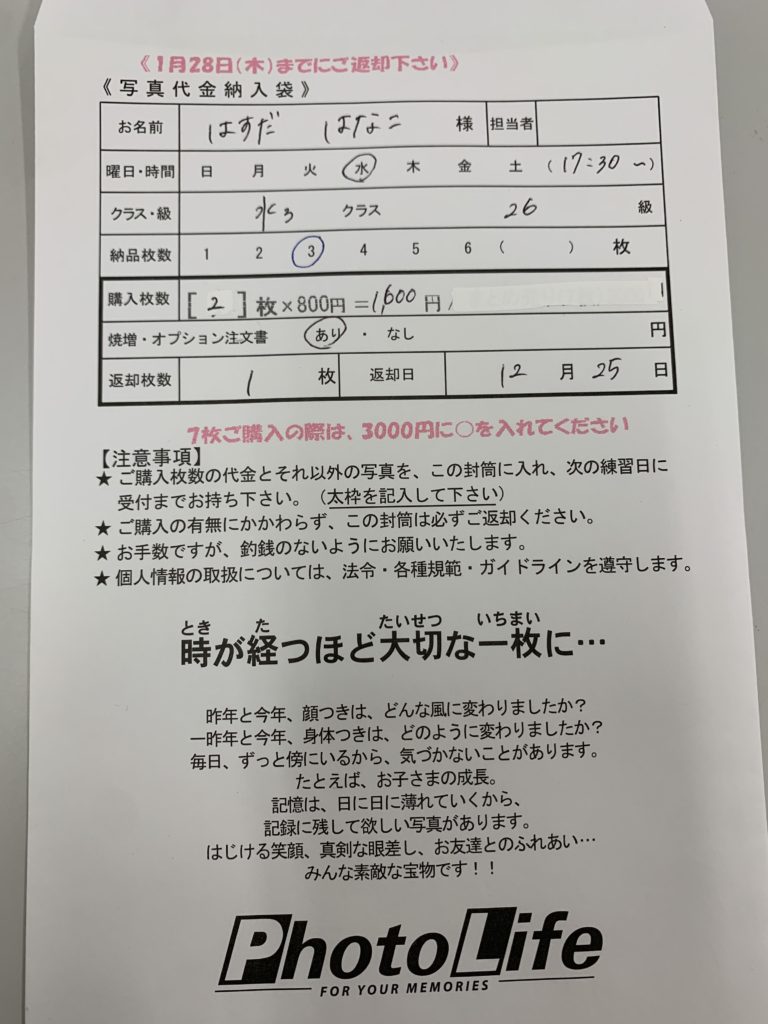 《1月28日(木)までにご返却下さい》
《写真代金納入袋》
お名前 はすだ はなこ 様 担当者
曜日・時間 日 月 火 水 木 金 土 (17:30 〜)
クラス・級 水3 クラス 26 級
納品枚数 1 2 3 4 5 6 ( ) 枚
購入枚数 [2]枚×800円=1,600円
焼増・オプション注文書 あり・なし 円
返却枚数 1 枚 返却日 12月25日
7枚ご購入の際は、3000円に○を入れてください
【注意事項】
★ ご購入枚数の代金とそれ以外の写真を、この封筒に入れ、次の練習日に
受付までお持ち下さい。(太枠を記入して下さい)
★ ご購入の有無にかかわらず、この封筒は必ずご返却ください。
★ お手数ですが、釣銭のないようにお願いいたします。
★ 個人情報の取扱については、法令・各種規範・ガイドラインを遵守します。
とき た たいせつ いちまい
時が経つほど大切な一枚に…
昨年と今年、顔つきは、どんな風に変わりましたか?
一昨年と今年、身体つきは、どのように変わりましたか?
毎日、ずっと傍にいるから、気づかないことがあります。
たとえば、お子さまの成長。
記憶は、日に日に薄れていくから、
記録に残して欲しい写真があります。
はじける笑顔、真剣な眼差し、お友達とのふれあい…
みんな素敵な宝物です!!
PhotoLife
FOR YOUR MEMORIES